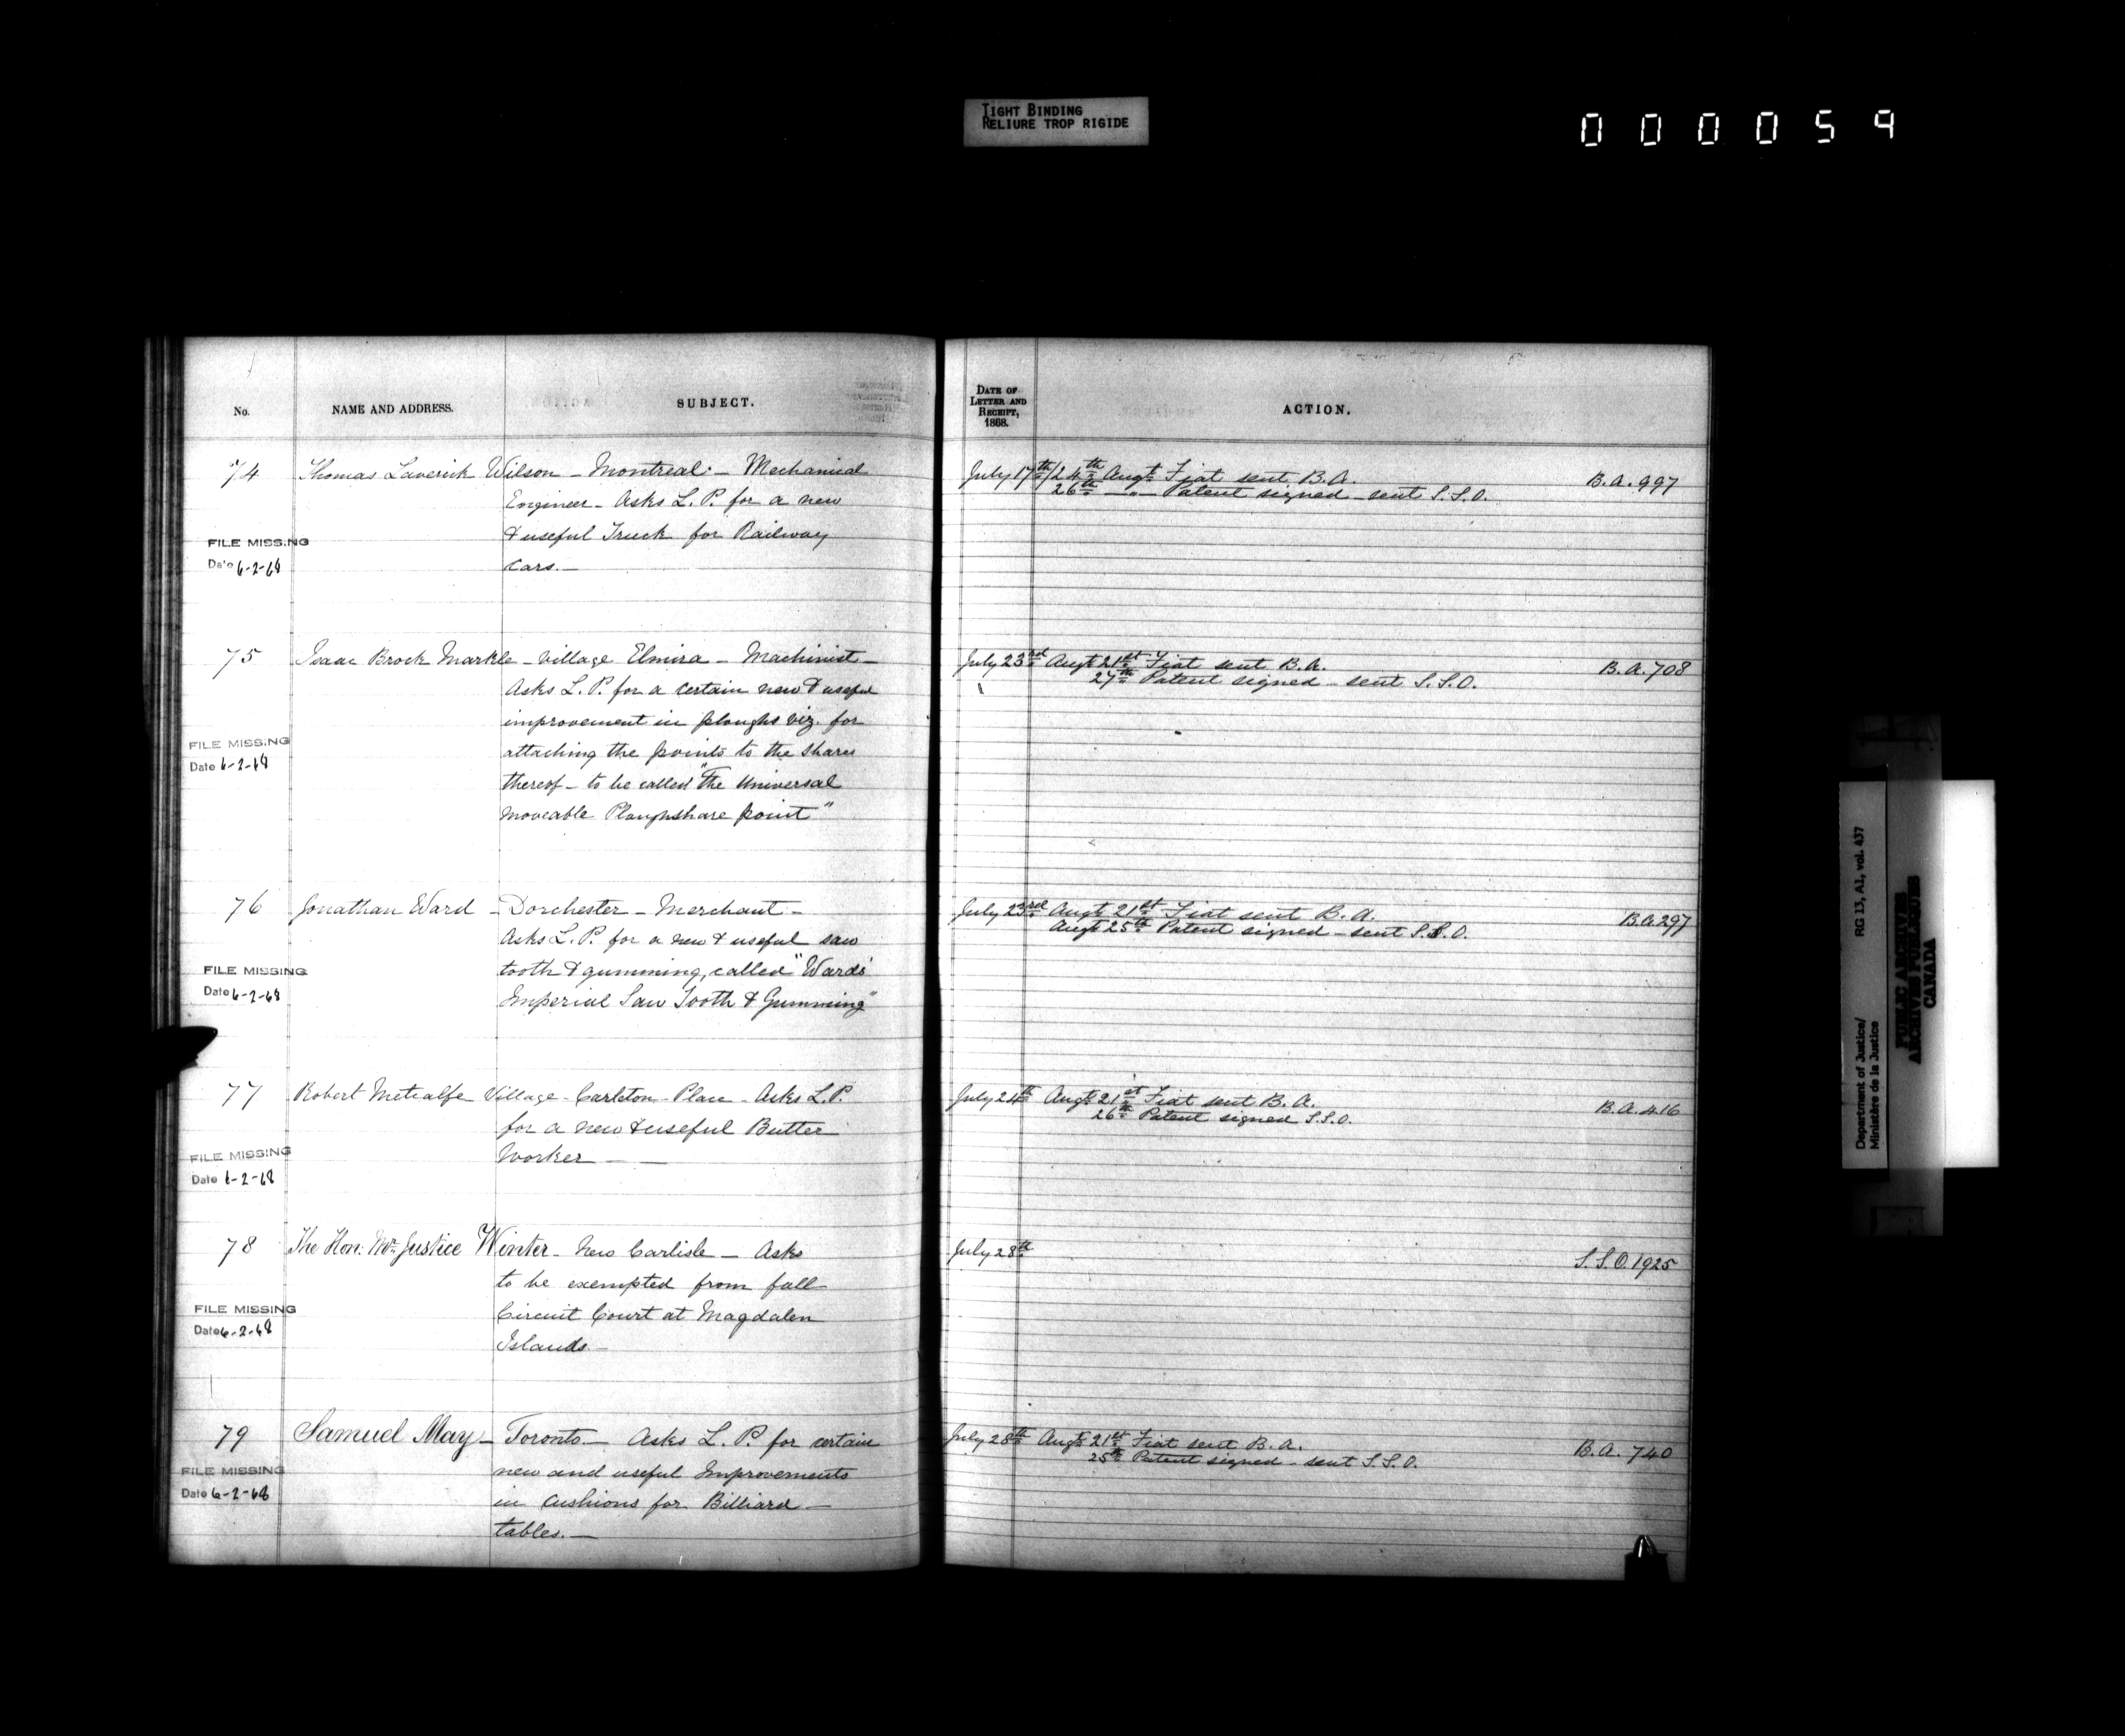 TIGHT BINDING
RELIURE TROP RIGIDE
000059
No.
NAME AND ADDRESS.
SUBJECT.
74 Thomas Laverick Wilson - Montreal - Mechanical
Engineer - Asks L. P. for a new
& useful Truck for Railway
Cars.—
FILE MISSING
Date 6-2-68
75 Isaac Brock Markle - Village Elmira - Machinist -
Asks L. P. for a certain new & useful
improvement in ploughs viz. for
attaching the points to the shares
thereof - to be called "The Universal
Moveable Ploughshare point"
FILE MISSING
Date 6-2-68
76 Jonathan Ward - Dorchester - Merchant -
Asks L. P. for a new & useful saw
tooth & gumming, called "Wards'
Imperial Saw Tooth & Gumming"
FILE MISSING
Date 6-2-68
77 Robert Metcalfe Village - Carleton - Place - Asks L. P.
for a new & useful Butter
Worker —
FILE MISSING
Date 6-2-68
78 The Hon: Mr. Justice Winter - New Carlisle - Asks
to be exempted from fall
Circuit Court at Magdalen
Islands -
FILE MISSING
Date 6-2-68
79 Samuel May - Toronto - Asks L. P. for certain
new and useful Improvements
in Cushions for Billiard -
tables. —
FILE MISSING
Date 6-2-68
DATE OF
LETTER AND
RECEIPT,
1868.
ACTION.
July 17th/24th Augt. Fiat sent B. A. B. A. 997
26th -"- Patent signed - sent S. S. O.
July 23rd Augt 21st Fiat sent B. A. B. A. 708
27th Patent signed - sent S. S. O.
July 23rd Augt 21st Fiat sent B. A. B. A 297
Augt 25th Patent signed - sent S. S. O.
July 24th Augt 21st Fiat sent B. A. B. A. 416
26th Patent signed S. S. O.
July 28th S. S. O. 1925
July 28th Augt 21st Fiat sent B. A. B. A. 740
25th Patent signed - sent S. S. O.
Department of Justice/
Ministère de la Justice
RG 13, A1, vol. 437
PUBLIC ARCHIVES
ARCHIVES PUBLIQUES
CANADA